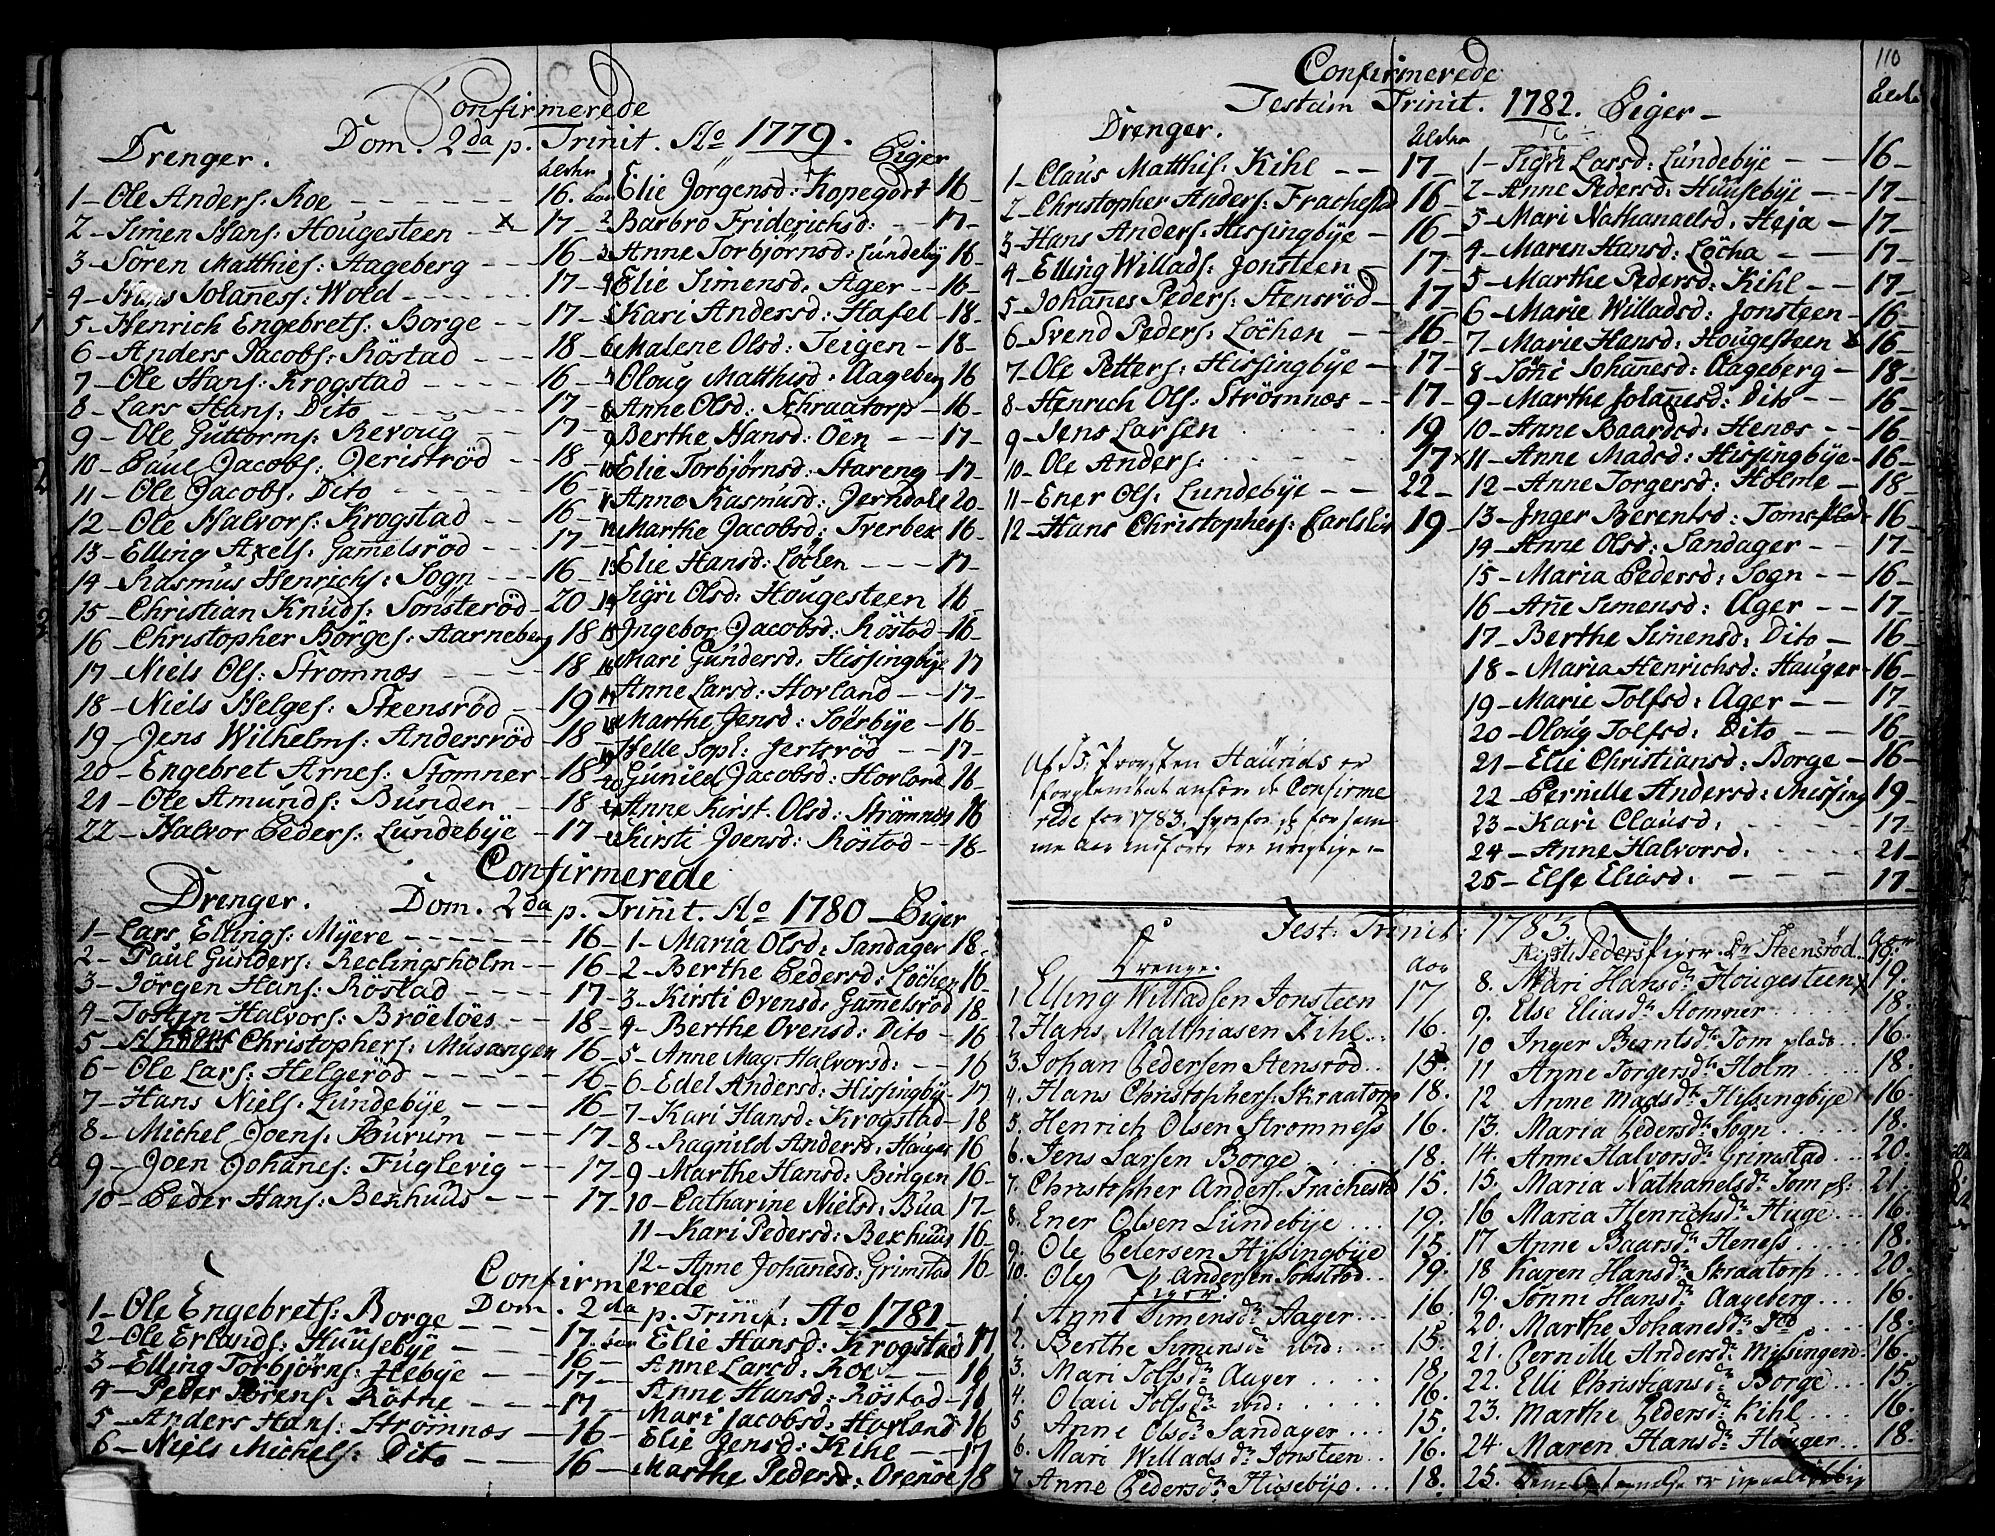 Confirmerede
Dom. 2da p. Trinit. Ao 1779.
Drenger.
Alder
1 - Ole Anders: Roe - - - 16. aar
2 - Simen Hans: Hougesteen - x 17 -
3 - Sören Matthies: Aageberg - - 16 -
4 - Hans Johannes: Wold - - - 17 -
5 - Henrich Engebrets: Borge - - 17 -
6 - Anders Jacobs: Röstad - - - 18 -
7 - Ole Hans: Krogstad - - - 16 -
8 - Lars Hans: Dito - - - 17 -
9 - Ole Guttorms: Revoug - - - 17 -
10 - Paul Jacobs: Jeriströd - - 18 -
11 - Ole Jacobs: Dito - - - 16 -
12 - Ole Halvors: Krogstad - - - 16 -
13 - Elling Axels: Gamelsröd - - - 17 -
14 - Rasmus Henrichs: Sogn - - - 16 -
15 - Christian Knuds: Sonsteröd - 20 -
16 - Christopher Börges: Aarneberg 18
17 - Niels Ols: Stromnæs - - - 18
18 - Niels Helges: Steensröd - - 19 -
19 - Jens Wilhelms: Andersröd 18
20 - Engebret Arnes: Stomner - 18
21 - Ole Amunds: Bunden - - 18
22 - Halvor Peders: Lundebye - 17 -
Piger
1 Elie Jörgensd: Kopegört 16 -
2 Barbro Friderichsd: - - 17 -
3 Anne Torbjørnsd: Lundeby 16 -
4 Elie Simensd: Ager - - 16 -
5 Kari Andersd: Hafel - 18 -
6 Malene Olsd: Teigen - 18 -
7 Oloug Matthisd: Aageberg 16
8 Anne Olsd: Schraatorp - 16 -
9 Berthe Hansd: Oen - - 17 -
10 Elie Torbjörnsd: Stareng - 17 -
11 Anne Rasmusd: Jerndale 20 -
12 Marthe Jacobsd: Tverbek 16 -
13 Elie Hansd: Löchen - - - 17 -
14 Sigri Olsd: Hougesteen - 16 -
15 Ingebor Jacobsd: Röstad - 16 -
16 Mari Gundersd: Hissingbye 17
17 Anne Larsd: Horland - - 17 -
18 Marthe Jensd: Soerbye - 16 -
19 Helle Soph: Jerlsröd - - 17 -
20 Gunild Jacobsd: Horland 16 -
21 Anne Kirst. Olsd: Strømnæs 16
22 Kirsti Joensd: Röstad - - 18 -
Confirmerede
Dom. 2da p. Trinit. Ao 1780 -
Drenger.
1 - Lars Ellings: Myere - - - 16 -
2 - Paul Gulders: Reclingsholm - - 16 -
3 - Jörgen Hans: Röstad - - - 17 -
4 - Josten Halvors: Bröelöes - - - 18 -
5 - Christophers: Musangen 16 -
6 - Ole Lars: Helgeröd - - - 16 -
7 - Hans Niels: Lundebye - - - 16 -
8 - Michel Joens: Kurum - - - 17 -
9 - Joen Johanes: Fuglevig - - - 17 -
10 - Peder Hans: Bekhuus - - - 17 -
Piger
1 - Maria Olsd: Sandager 18 -
2 - Berthe Pedersd: Löchen 16 -
3 - Kirsti Ovensd: Gamelsröd 18 -
4 - Berthe Ovensd: Dito - 16
5 - Anne Mag. Halvorsd: - - 16
6 - Edel Andersd: Hissingbye - 17
7 - Kari Hansd: Krogstad - 18
8 - Ragnild Andersd: Houger 16
9 - Marthe Hansd: Bingen 16 -
10 - Catharine Nielsd: Bua 17 -
11 - Kari Pedersd: Bekhuus 16 -
12 - Anne Johanesd: Grimstad 16
Confirmerede
Dom. 2da p. Trinit. Ao 1781 -
1 - Ole Engebrets: Borge - - - 17. aar
2 - Ole Erlands: Huusebye - - - 16 -
3 - Elling Torbjørns: Hebye - - 17 -
4 - Peder Sörens: Röthe - - - 17 -
5 - Anders Hans: Strømnæs - - 16 -
6 - Niels Michels: Dito - - - 16 -
Elie Hansd: Krogstad 17
Anne Larsd: Roe - - 16
Anne Hansd: Röstad - 16
Mari Jacobsd: Horland 16
Elie Jensd: Kihl - - 17
Marthe Pedersd: Orenöe 18
110
Confirmerede
Festum Trinit. 1782.
Drenger.
Alder
1 - Claus Matthis: Kihl - - 17 -
2 - Christopher Anders: Frachestad 16 -
3 - Hans Anders: Hissingbye - 16 -
4 - Elling Willads: Jonsteen - 17 -
5 - Johanes Peders: Stensröd - 17 -
6 - Svend Peders: Löchen - - 16
7 - Ole Petters: Hissingbye - 17 -
8 - Henrich Ols: Strömnæs - - 17 -
9 - Jens Larsen 19
10 - Ole Anders: 17
11 - Ener Ols: Lundebye - - 22 -
12 - Hans Christophers: Carlslis 19 -
Piger -
Alder
1 - Sigri Larsd: Lundebye - - 16 -
2 - Anne Pedersd: Huusebye - - 17 -
3 - Mari Nathanaelsd: Heja - 17 -
4 - Maren Hansd: Löcha - - 17 -
5 - Marthe Pedersd: Kihl - - 17 -
6 - Marie Willadsd: Jonsteen - 16 -
7 - Marie Hansd: Hougesteen x 16 -
8 - Söni Johanesd: Aageberg - 18 -
9 - Marthe Johanesd: Dito - - 16 -
10 - Anne Baardsd: Henæs - - 16 -
x 11 - Anne Madsd: Hissingbye - 16 -
12 - Anne Torgersd: Holme - 18 -
13 - Inger Berentsd: Tomeplads 16 -
14 - Anne Olsd: Sandager - - 17 -
15 - Maria Pedersd: Sogn - - 16 -
16 - Anne Simensd: Ager - - 17 -
17 - Berthe Simensd: Dito - 16 -
18 - Maria Henrichsd: Hauger - 16 -
19 - Marie Tolfsd: Ager - - 17 -
20 - Oloug Tolfsd: Dito - - 16 -
21 - Elie Christiansd: Borge - 16 -
22 - Pernille Andersd: Missing 19 -
23 - Kari Clausd: - - - 17 -
24 - Anne Halvorsd: - - - 21 -
25 - Else Eliasd: - - - 17 -
af Sr. Provsten Haürids er
forglembt anføre de Confirme
rede for 1783, hvorfor de for sam
me Aar indførte ere urigtige -
Fest: Trinit: 1783.
Drenge.
Aar
1 Elling Willadsen Jonsteen 17
2 Hans Matthiasen Kihl.. 16.
3. Johan Pedersen Stensröd.. 15.
4. Hans Christophers: Skraatorp 18.
5. Henrich Olsen Stromness 16.
6. Jens Larsen Borge .... 18.
7. Christopher Anders: Frachestad 15.
8. Ener Olsen Lundebye ... 19.
9. Ole Pedersen Hyssingbye 15.
10. Ole Andersen Sonstöd.. 19.
Piger.
1 Anne Simensdr Aager .. 16.
2. Berthe Simensdr ibid: .. 15.
3. Mari Tolfsdr Auger ... 18.
4. Olau Tolfsdr ibid: .... 16.
5 Anne Olsdr Sandager ... 15.
6. Mari Willadsdr Jonsteen .. 16.
7. Anne Pedersdr Husebye ... 18.
Kirsti Peders Piger. Dr Steensröd 19.
8. Mari Hansdr Hougesteen x 19.
9. Else Eliasdr Stomner .... 18.
10 Inger Berntsdr Tom plads.. 16.
11 Anne Torgersdr Holm .... 18.
12 Anne Madsdr Hissingbye 16.
13. Maria Pedersdr Sogn ..... 18.
14. Anne Halvorsdr Grimstad.. 20.
15. Maria Nathanelsdr Tom pl: 21.
16 Maria Henrichsdr Huge .. 16.
17 Anne Baarsdr Heness ..... 18.
18 Karen Hansdr Skraatorp ... 20.
19. Sonni Hansdr Aageberg ... 16.
20. Marthe Johanesdr ibd .... 18.
21. Pernille Andersdr Missingen. 16.
22. Elli Christiansdr Borge ... 15.
23. Marthe Pedersdr Kihl .... 16.
24 Maren Hansdr Houger.. 18.
25. Denne Optegnelse er upaalidelig